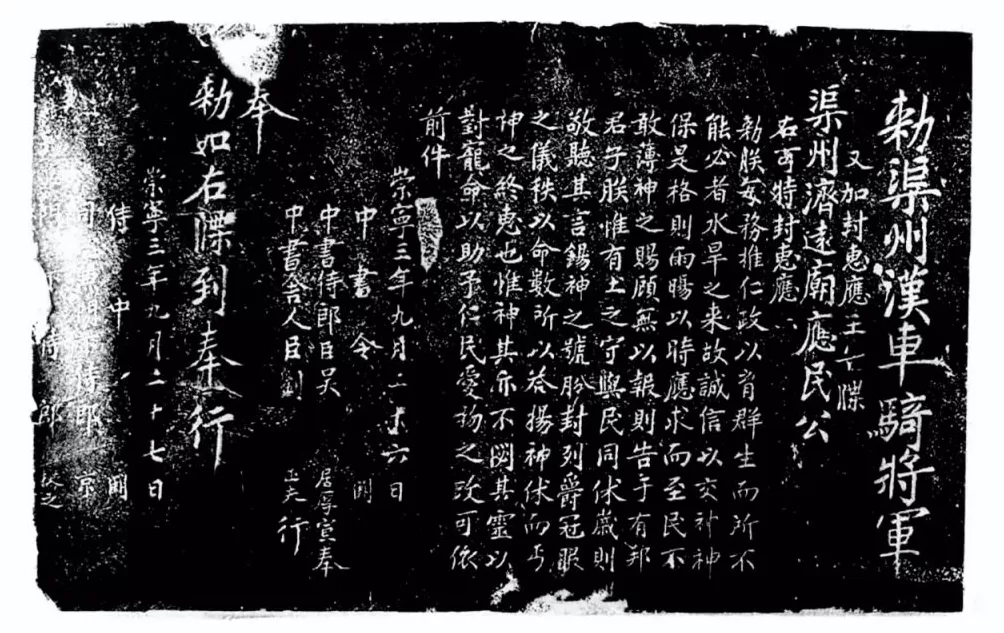 勑渠州漢車騎將軍
又加封惠應王告牒
渠州濟遠廟應民公
右可特封惠應
勑朕每務推仁政以育群生而所不
能必者水旱之来故誠信以交神神
保是格則雨暘以時應求而至民不
敢薄神之賜顧無以報則告于有邦
君子朕惟有土之守與民同休嵗則
敬聽其言錫神之號肦封列爵冠服
之儀秩以命數所以荅揚神休而丐
神之終惠也惟神其亦不閟其靈以
對寵命以助予仁民愛物之政可依
前件
崇寧三年九月二十六日
中書令 闕
中書侍郎臣吳 居厚宣奉
中書舍人臣劉 正夫行
奉
勑如右牒到奉行
崇寧三年九月二十七日
侍中 闕
門下侍郎